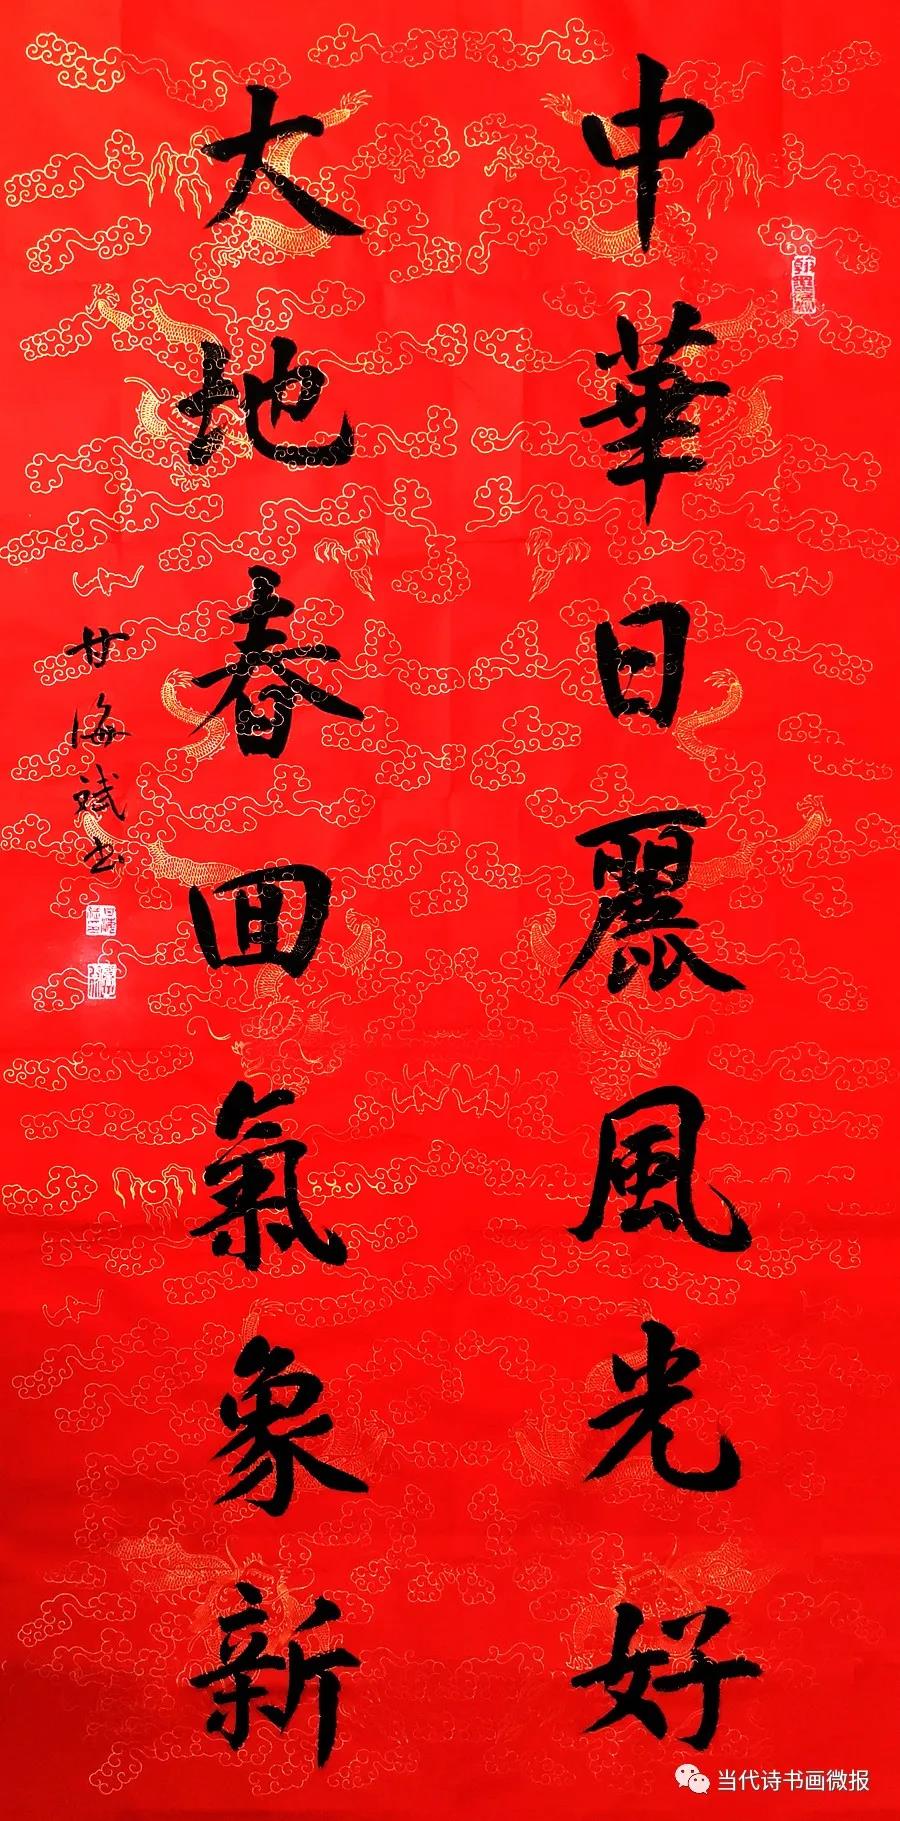 中華日麗風光好
大地春回氣象新
甘海斌书
当代诗书画微报